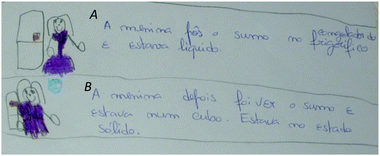 A
A menina pôs o sumo no congelador do frigorífico
E estava líquido.
B
A menina depois foi ver o sumo e
estava num cubo. Estava no estado
sólido.